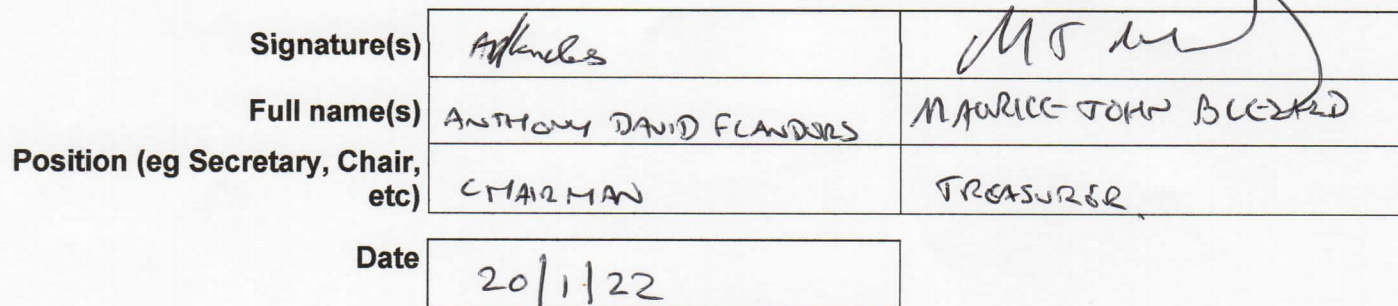 Signature(s)
Full name(s) ANTHONY DAVID FLANDERS MAURICE JOHN BLEZARD
Position (eg Secretary, Chair, etc) CHAIRMAN TREASURER
Date 20/1/22